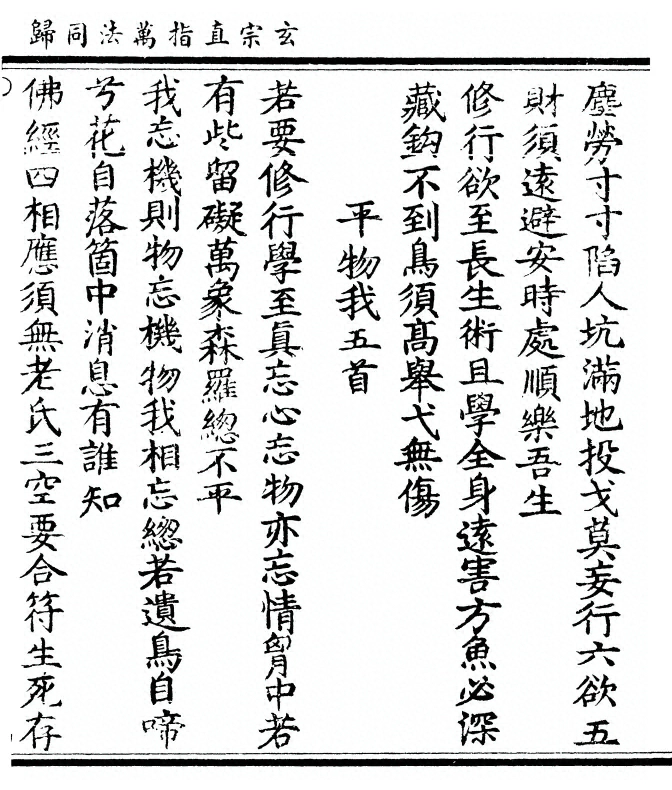 玄宗直指萬法同歸
塵勞寸寸陷人坑滿地投戈莫妄行六欲五
財須遠避安時處順樂吾生
修行欲至長生術且學全身遠害方魚必深
藏鈎不到鳥須髙舉弋無傷
平物我五首
若要修行學至眞忘心忘物亦忘情胷中若
有些留礙萬象森羅緫不平
我忘機則物忘機物我相忘緫若遺鳥自啼
兮花自落箇中消息有誰知
佛經四相應須無老氏三空要合符生死存